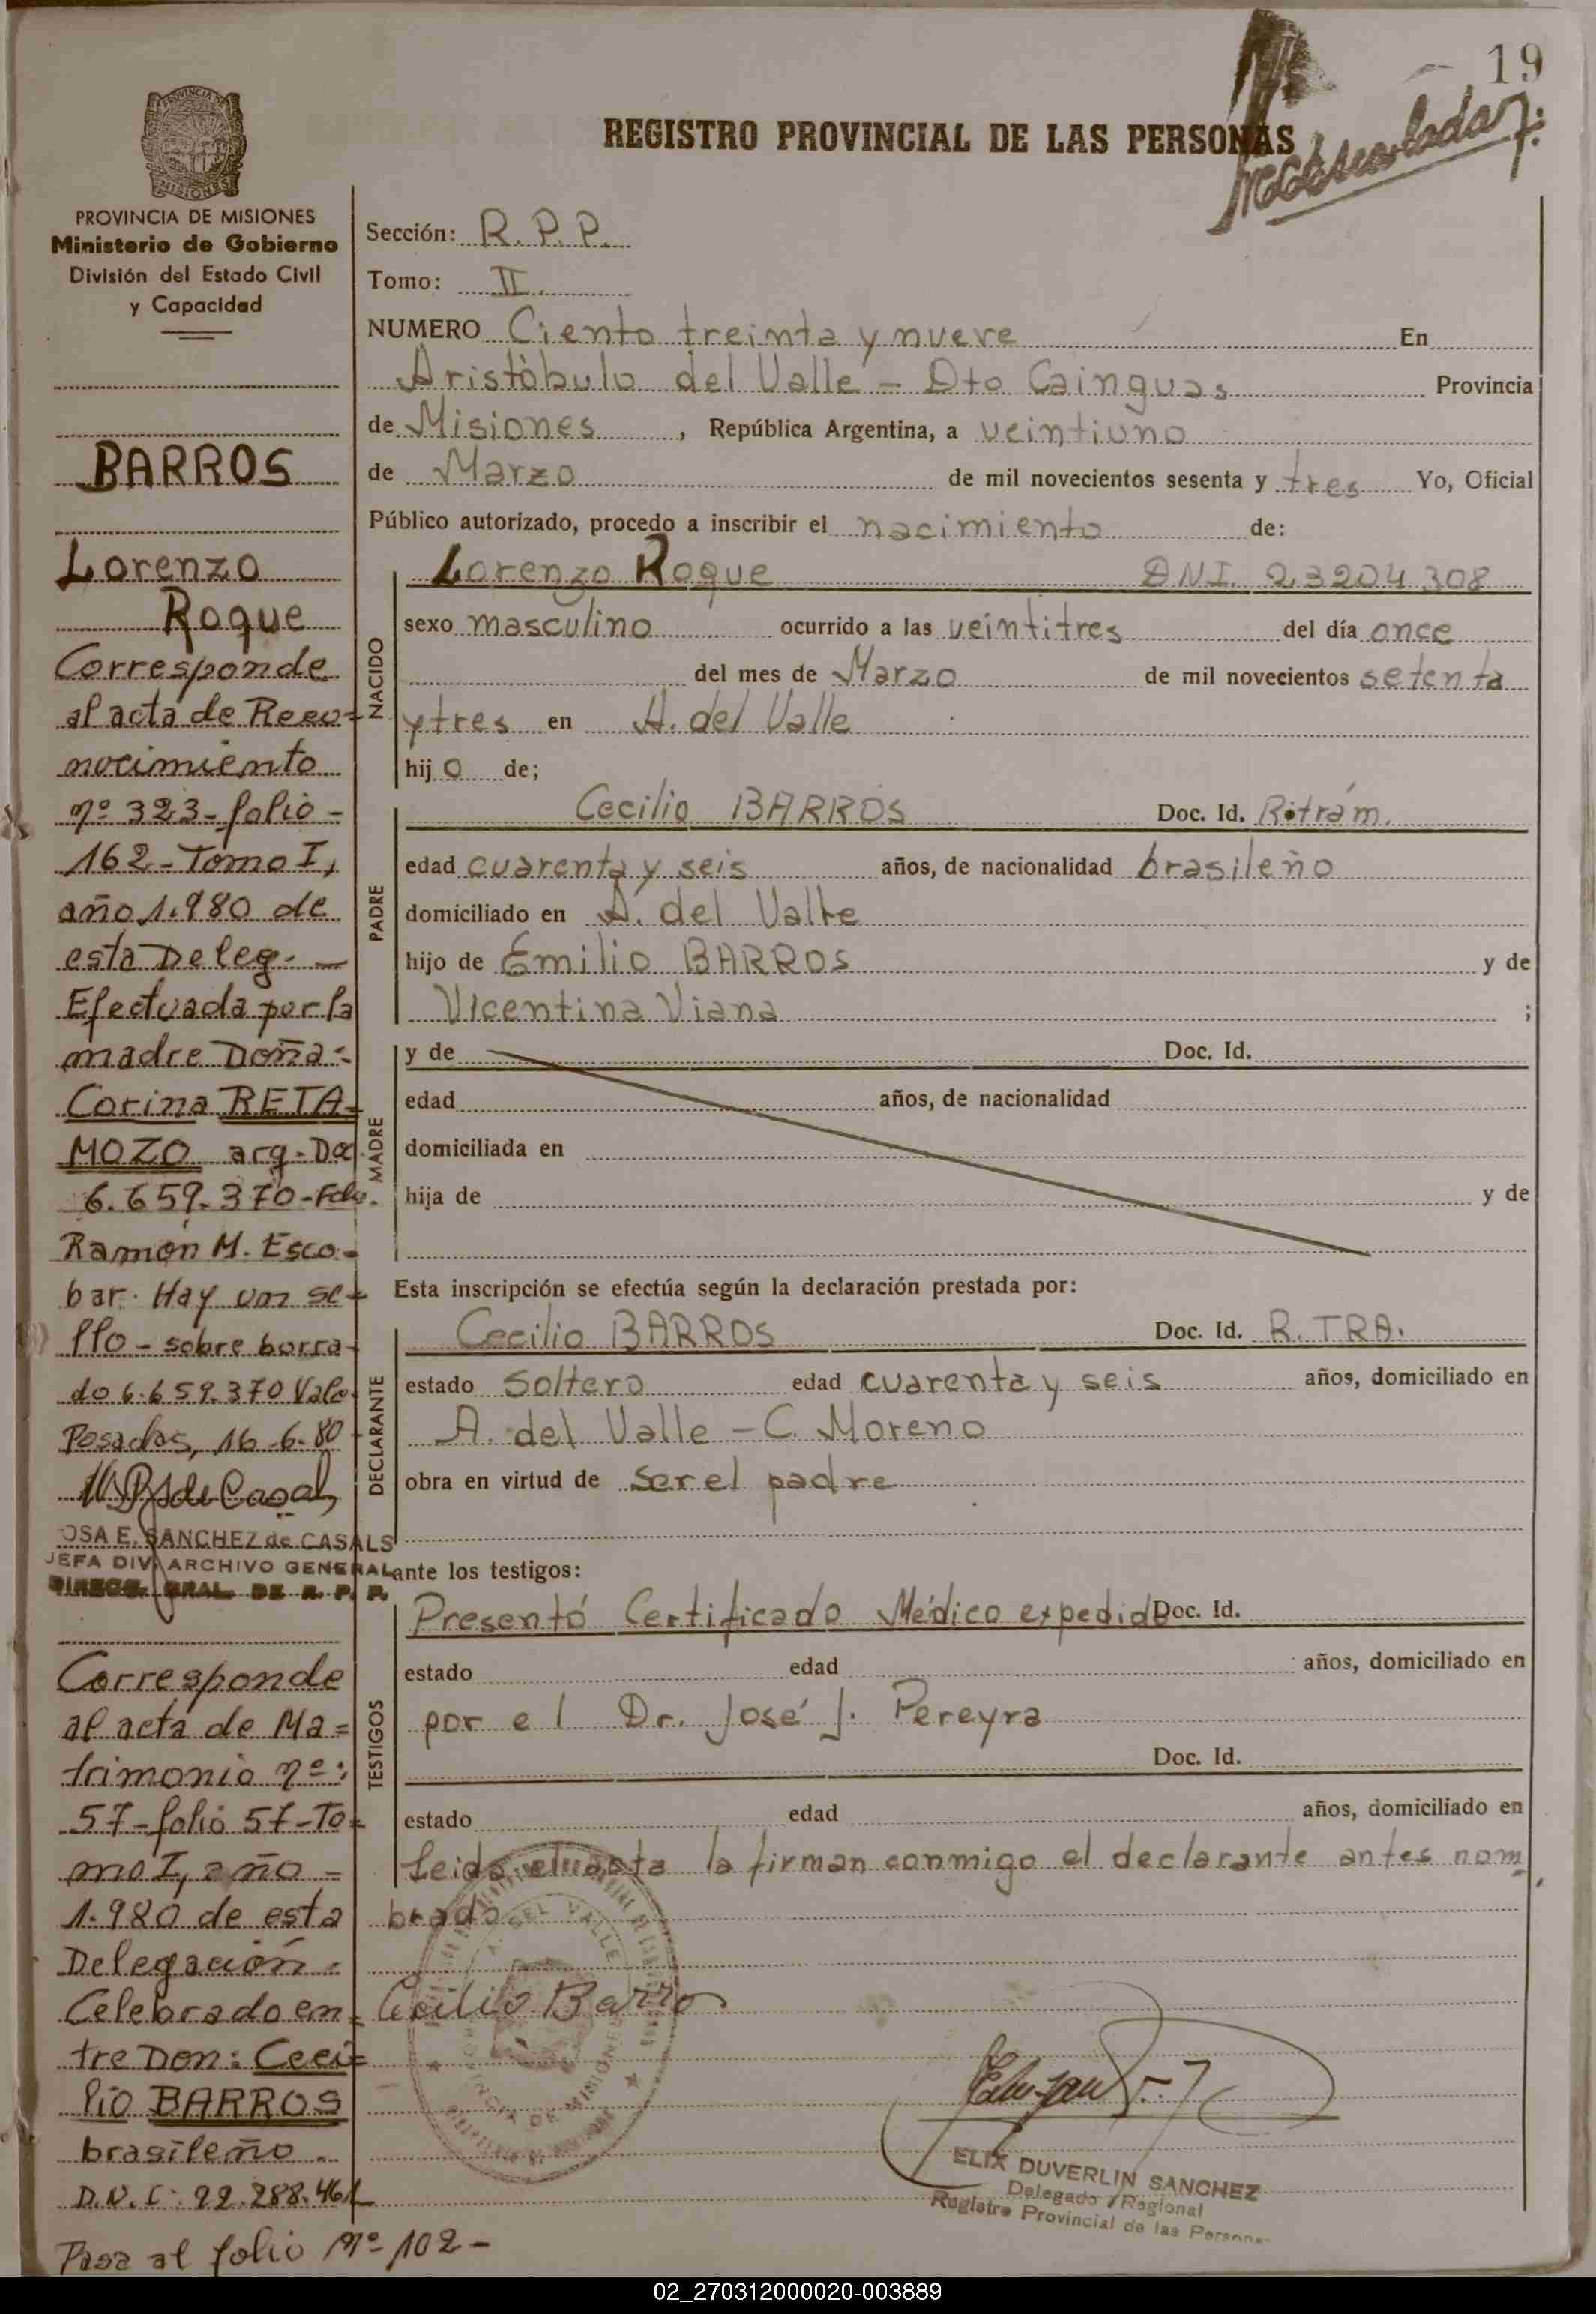 19
REGISTRO PROVINCIAL DE LAS PERSONAS
PROVINCIA DE MISIONES
Ministerio de Gobierno
División del Estado Civil
y Capacidad
BARROS
Lorenzo
Roque
Corresponde
al acta de Reco=
nocimiento
nº 323-folio-
162-Tomo I,
año 1.980 de
esta Deleg.-
Efectuada por la
madre Doña:
Corina RETA-
MOZO arg-Doc.
6.659.370-Fdo.
Ramón M. Esco-
bar. Hay un se-
llo - sobre borra-
do 6.659.370 Vale.
Posadas, 16-6-80
OSA E. SANCHEZ de CASALS
JEFA DIV. ARCHIVO GENERAL
DIRECC. GRAL. DE R. P. P.
Corresponde
al acta de Ma=
trimonio nº:
57-folio 57-To=
mo I, año -
1.980 de esta
Delegación.
Celebrado en=
tre Don: Ceci=
lio BARROS
brasileño.
D.N.I: 92.288.461
Pasa al folio Nº 102-
Sección: R.P.P.
Tomo: II.
NUMERO Ciento treinta y nueve En
Aristóbulo del Valle - Dto Cainguas Provincia
de Misiones, República Argentina, a veintiuno
de Marzo de mil novecientos sesenta y tres Yo, Oficial
Público autorizado, procedo a inscribir el nacimiento de:
NACIDO
Lorenzo Roque DNI. 23204308
sexo masculino ocurrido a las veintitres del día once
del mes de Marzo de mil novecientos setenta
y tres en A. del Valle
hijo de;
PADRE
Cecilio BARROS Doc. Id. R.trám.
edad cuarenta y seis años, de nacionalidad brasileño
domiciliado en A. del Valle
hijo de Emilio BARROS y de
Vicentina Viana ;
MADRE
y de Doc. Id.
edad años, de nacionalidad
domiciliada en
hija de y de
Esta inscripción se efectúa según la declaración prestada por:
DECLARANTE
Cecilio BARROS Doc. Id. R. TRA.
estado Soltero edad cuarenta y seis años, domiciliado en
A. del Valle - C. Moreno
obra en virtud de ser el padre
ante los testigos:
TESTIGOS
Presentó Certificado Médico expedido Doc. Id.
estado edad años, domiciliado en
por el Dr. José J. Pereyra
Doc. Id.
estado edad años, domiciliado en
Leida el acta la firman conmigo el declarante antes nom
brado
A. DEL VALLE
PROVINCIA DE MISIONES
Cecilio Barro
ELIX DUVERLIN SANCHEZ
Delegado Regional
Registro Provincial de las Personas
02_270312000020-003889